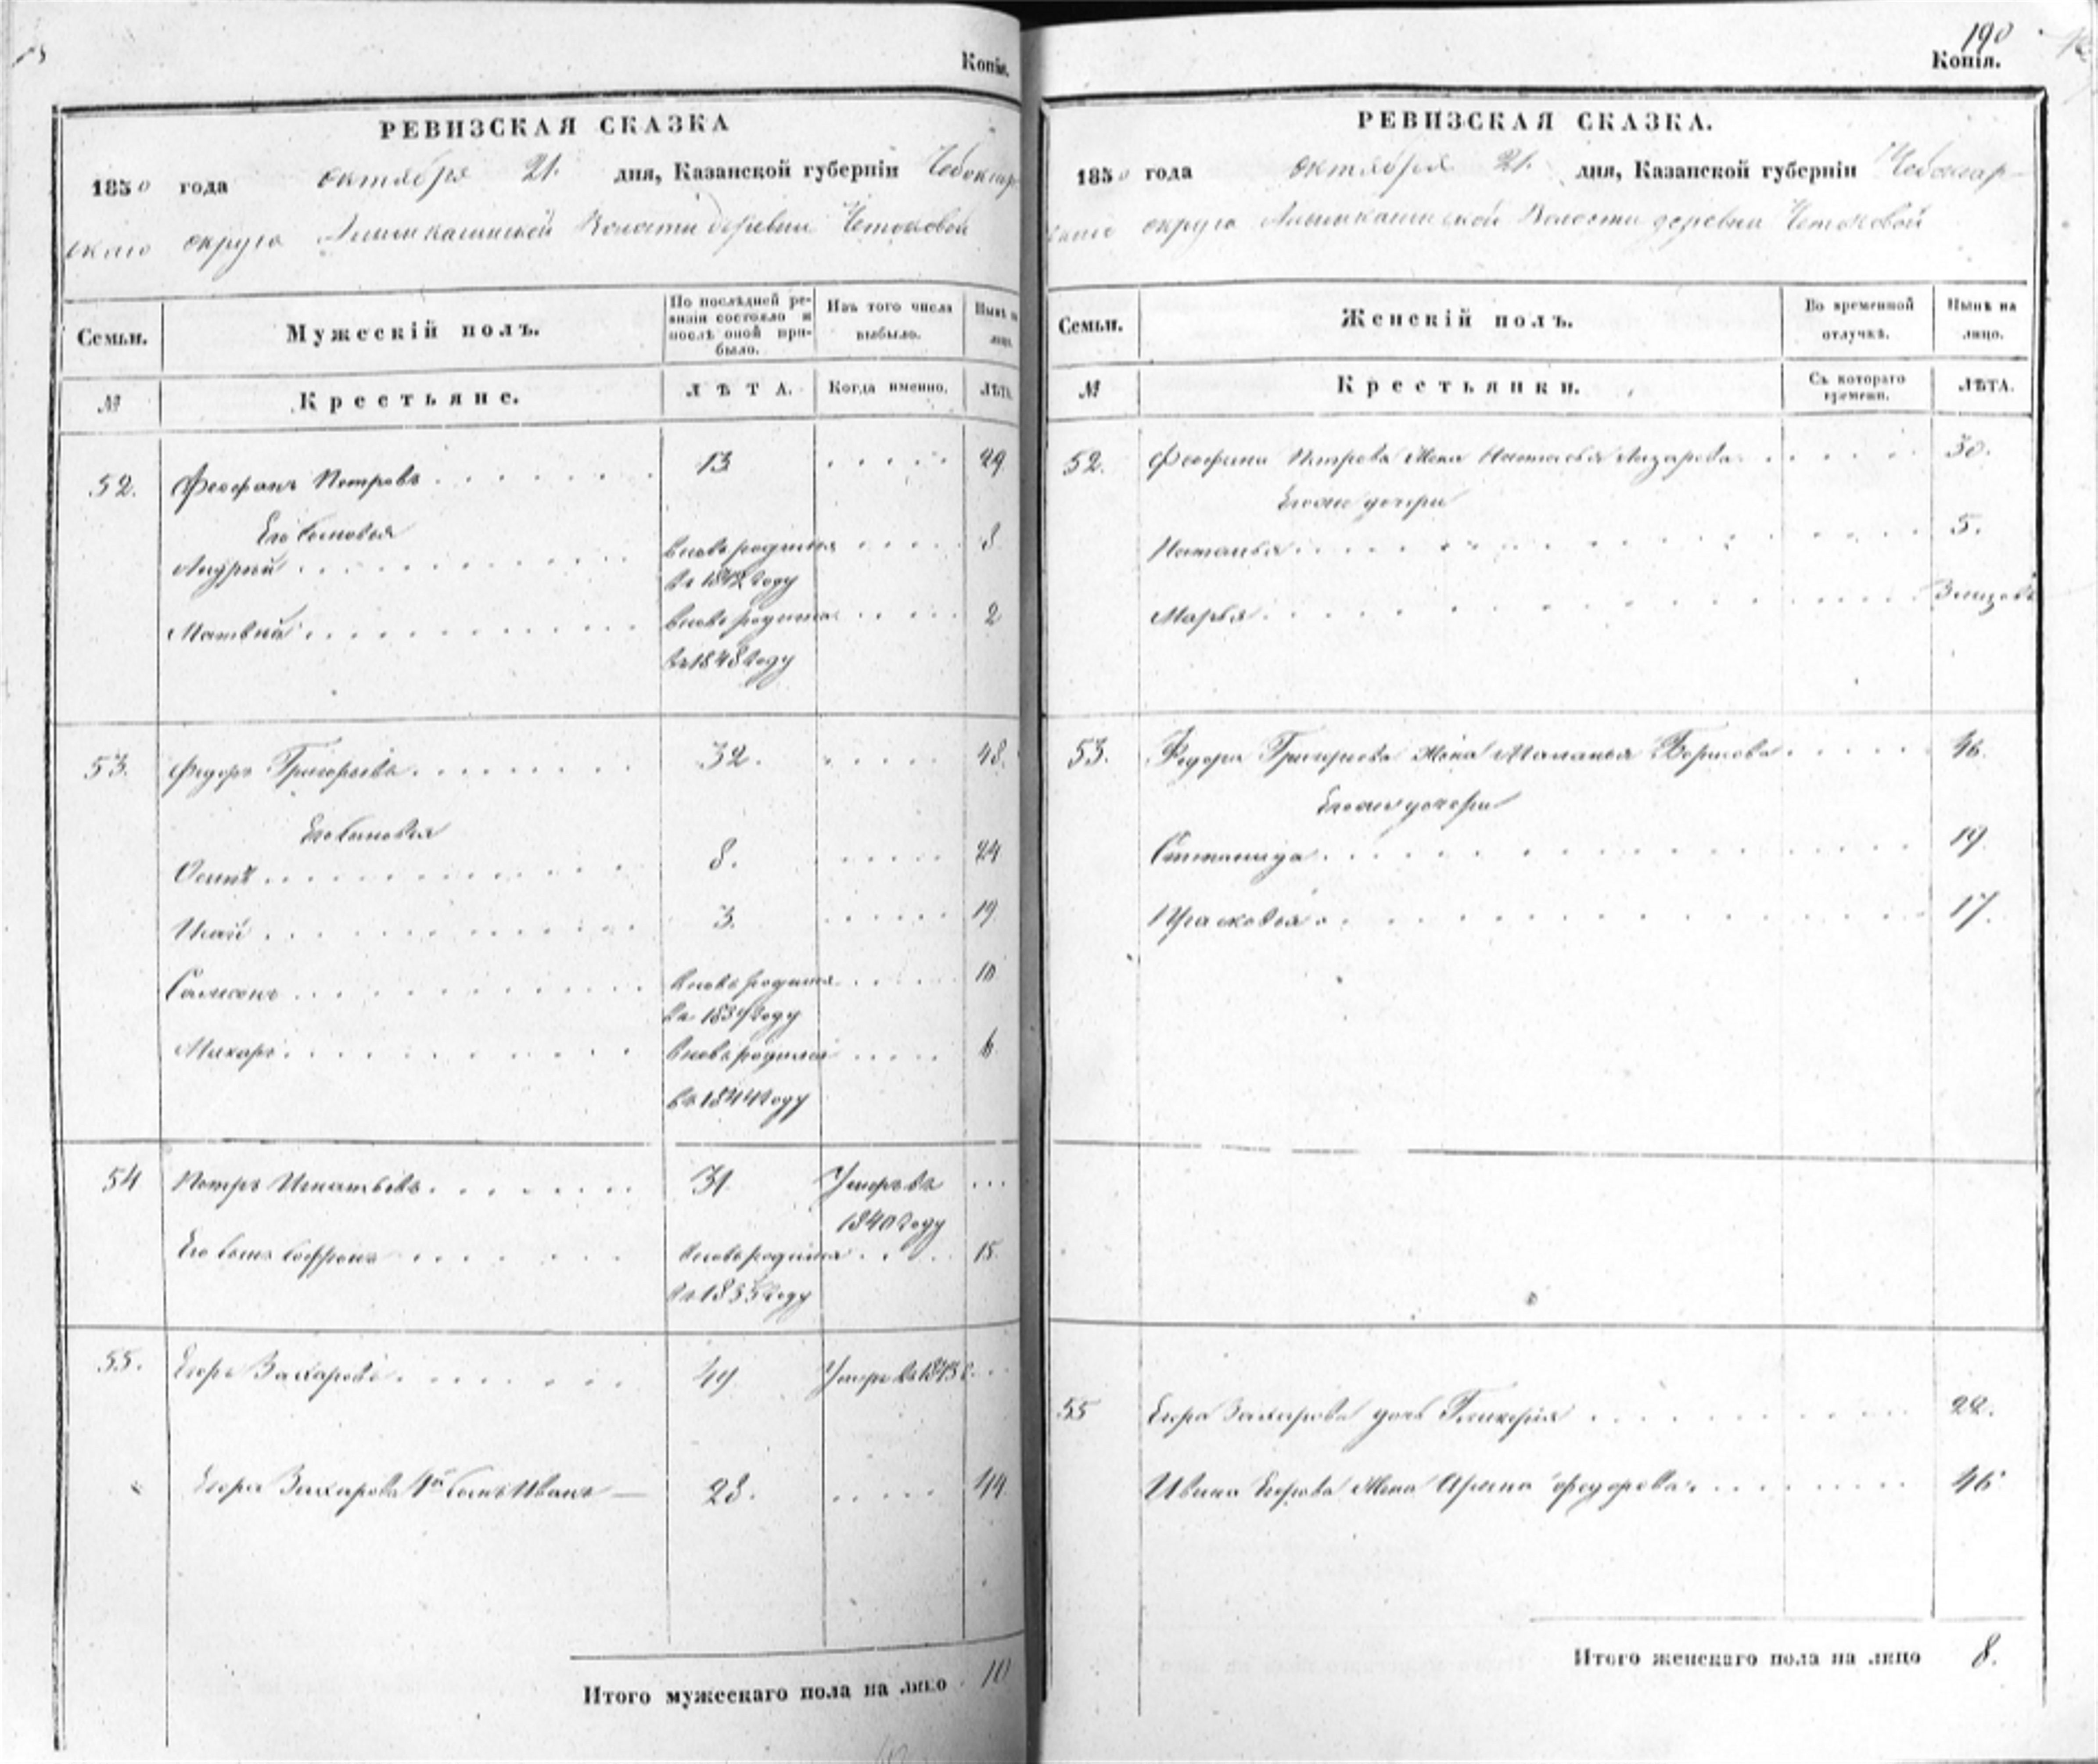 Копія.
РЕВИЗСКАЯ СКАЗКА
1850 года октября 21. дня, Казанской губерніи Чебоксар
скаго округа Волости деревни
Семьи.
Мужескій полъ.
По послѣдней ре-
визіи состояло и
послѣ оной при-
было.
Изъ того числа
выбыло.
Нынѣ на
лицо.
№
Крестьяне.
ЛѢТА.
Когда именно.
ЛѢТА.
52. Феофанъ Петровъ 13 29
Его Сыновья
Андрей вновь родился 8
въ 1842 году
Матвей вновь родился 2
въ 1848 году
53. Федоръ Григорьевъ 32. 48.
Его Сыновья
Осипъ 8. 24
Исай 3. 19
Самсонъ вновь родился 10
въ году
Макаръ вновь родился 6
въ 1844 году
54 Петръ Игнатьевъ 31 Умеръ въ
1840 году
Его сынъ Софронъ вновь родился 15.
въ 1835 году
55. Егоръ Захаровъ 49 Умеръ въ
Егора Захарова 1й сынъ Иванъ — 28. 44
Итого мужескаго пола на лицо 10
190
Копія.
РЕВИЗСКАЯ СКАЗКА.
1850 года октября 21. дня, Казанской губерніи Чебоксар-
скаго округа Волости деревни
Семьи.
Женскій полъ.
Во временной
отлучкѣ.
Нынѣ на
лицо.
№
Крестьянки.
Съ котораго
времени.
ЛѢТА.
52. Феофана Петрова жена Настасья Лазарева 30.
Его дочери
Наталья 5.
Марья
53. Федора Григорьева жена Маланья Борисова 46.
Его дочери
Степанида 19.
Прасковья 17.
55 Егора Захарова дочь Гликерья 22.
Ивана Егорова жена Арина Федорова 46
Итого женскаго пола на лицо 8.